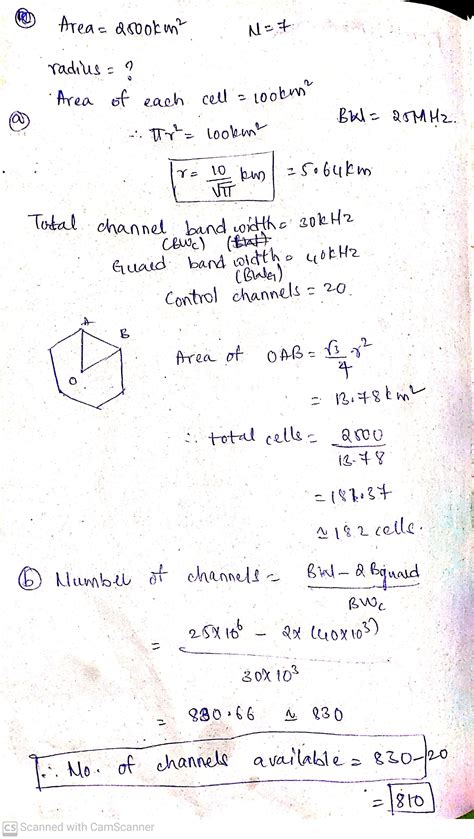 Area = 2500km² N = 7
radius = ?
Area of each cell = 100km²
(a) ∴ πr² = 100km² BW = 25MHz.
r = 10/√π km = 5.64km
Total channel band width = 30kHz
(BWc)
Guard band width = 40kHz
Control channels = 20.
A
B
O
Area of OAB = √3/4 r²
= 13.78km²
∴ total cells = 2500/13.78
= 181.37
≈ 182 cells.
(b) Number of channels = BW - 2 Bguard / BWc
= 25×10⁶ - 2×(40×10³) / 30×10³
= 830.66 ≈ 830
∴ No. of channels available = 830-20
= 810
CS Scanned with CamScanner